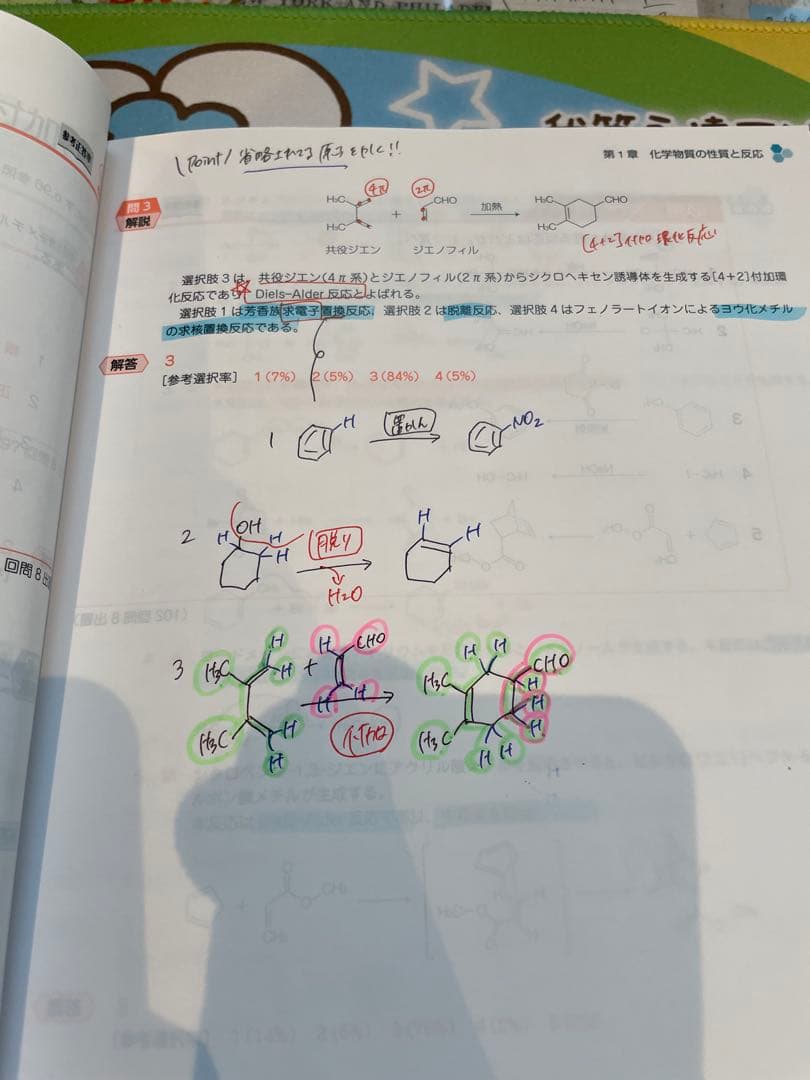 \ Point / 省略されてる原子をかく!!
第1章 化学物質の性質と反応
問3
解説
H₃C
H₃C
4π
+
2π
CHO
加熱
H₃C
H₃C
CHO
共役ジエン
ジエノフィル
[4+2]付加環化反応
選択肢3は,共役ジエン(4π系)とジエノフィル(2π系)からシクロヘキセン誘導体を生成する[4+2]付加環
化反応であり,Diels-Alder反応とよばれる。
選択肢1は芳香族求電子置換反応,選択肢2は脱離反応,選択肢4はフェノラートイオンによるヨウ化メチル
の求核置換反応である。
解答
3
[参考選択率] 1(7%) 2(5%) 3(84%) 4(5%)
1
H
置かん
NO₂
2
OH
H
H
H
脱り
H₂O
H
H
3
H₃C
H₃C
H
H
H
H
+
H
CHO
H
H
付加
H₃C
H₃C
H
H
CHO
H
H
H
H
H
回問8出